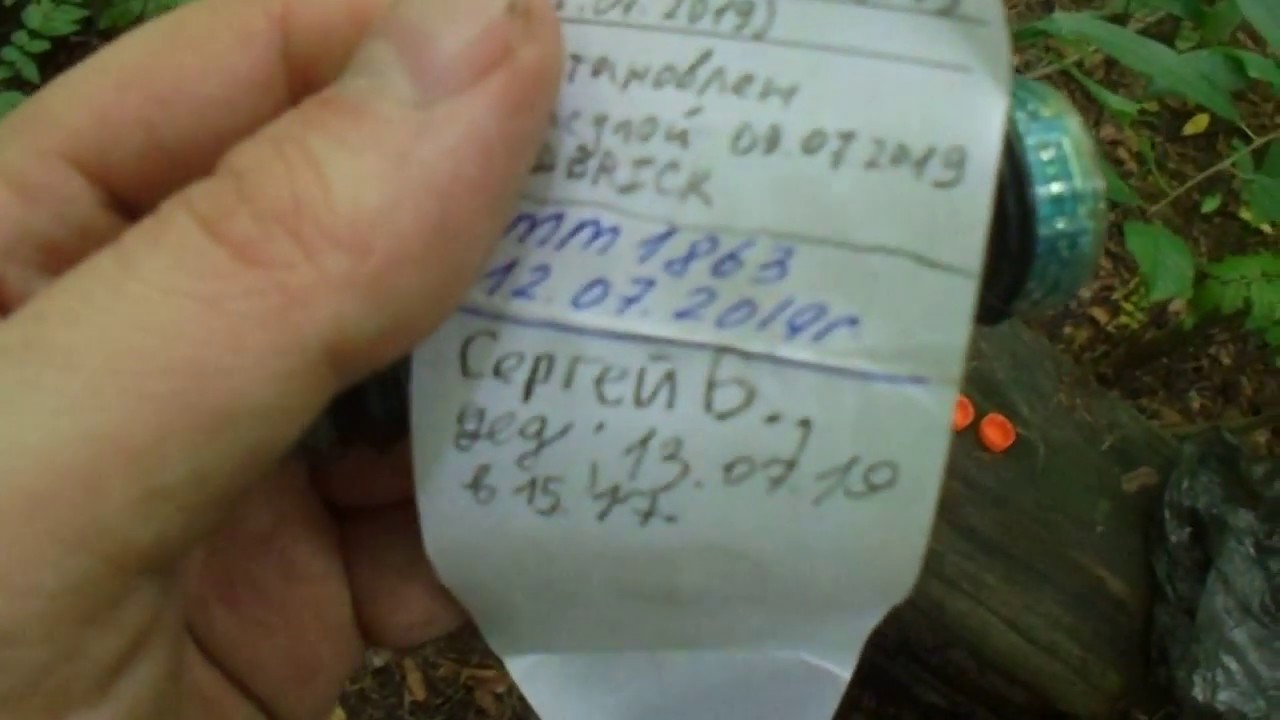 .01.2019)
тановлен
дой 09.07 2019
DERICK
mm 1863
12.07.2019г
Сергей Б.,
дед. 13.07.19
в 15.47.